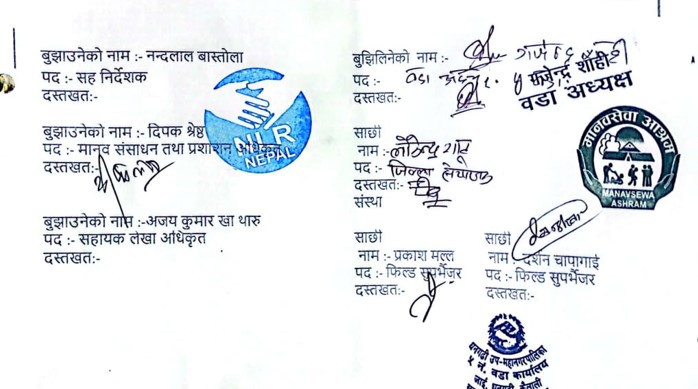 बुझाउनेको नाम :- नन्दलाल बास्तोला
पद :- सह निर्देशक
दस्तखत:-
बुझाउनेको नाम :- दिपक श्रेष्ठ
पद :- मानव संसाधन तथा प्रशासन अधिकृत
दस्तखत:-
NIR
NEPAL
बुझाउनेको नाम :-अजय कुमार खा थारु
पद :- सहायक लेखा अधिकृत
दस्तखत:-
बुझिलिनेको नाम :-
पद :- वडा
दस्तखत:-
वडा अध्यक्ष
साछी
नाम :-
पद :- जिल्ला
दस्तखत:-
संस्था
मानवसेवा आश्रम
MANAVSEWA
ASHRAM
साछी
नाम :- प्रकाश मल्ल
पद :- फिल्ड सुपर्भैजर
दस्तखत:-
साछी
नाम :- दर्शन चापागाई
पद :- फिल्ड सुपर्भैजर
दस्तखत:-
धनगढी उप-महानगरपालिका
५ नं. वडा कार्यालय